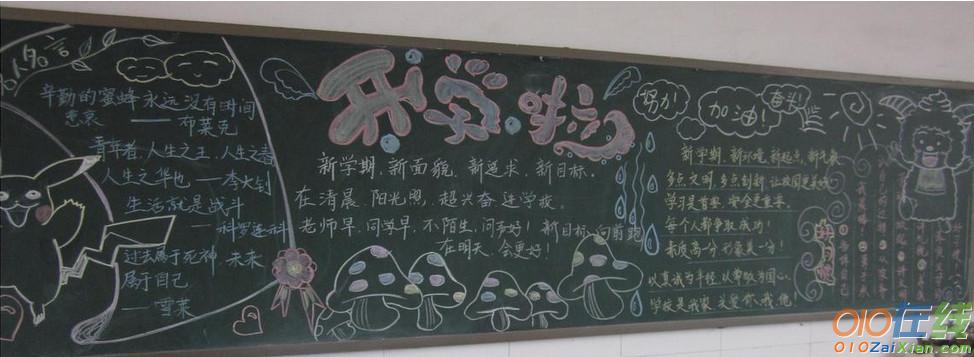 名言
辛勤的蜜蜂永远没有时间
悲哀 —— 布莱克
青年者,人生之王,人生之春
人生之华也 —— 李大钊
生活就是战斗
—— 科罗连科
过去属于死神,未来
属于自己
—— 雪莱
开学啦
新学期,新面貌,新追求,新目标。
在清晨,阳光照,超兴奋进学校。
老师早,同学早,不陌生,问声好!新目标,向前跑
在明天,会更好!
努力!
加油!
奋斗!
新学期,新环境,新起点,新气象
多点文明,多点创新,让校园更美好
学习是首要,安全更重要。
每个人都争取成功!
素质高一分,形象美一分!
以真诚为半径,以尊敬为圆心。
学校是我家,关爱你、我、他!
010在线
010ZaiXian.com